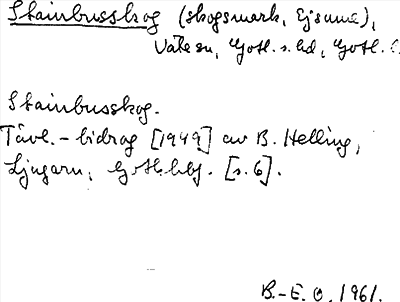 Stainbusskog (skogsmark, Ejsume),
Väte sn, Gotl. s. hd, Gotl. l
Stainbusskog.
Tävl.-bidrag [1949] av B. Helling,
Ljugarn, Gotl. [s. 6].
B.-E. O. 1961.